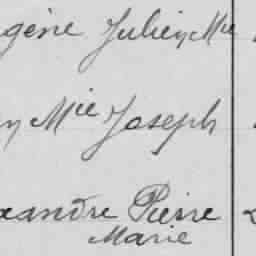 gène Julien Mie
Mie Joseph
xandre Pierre
Marie